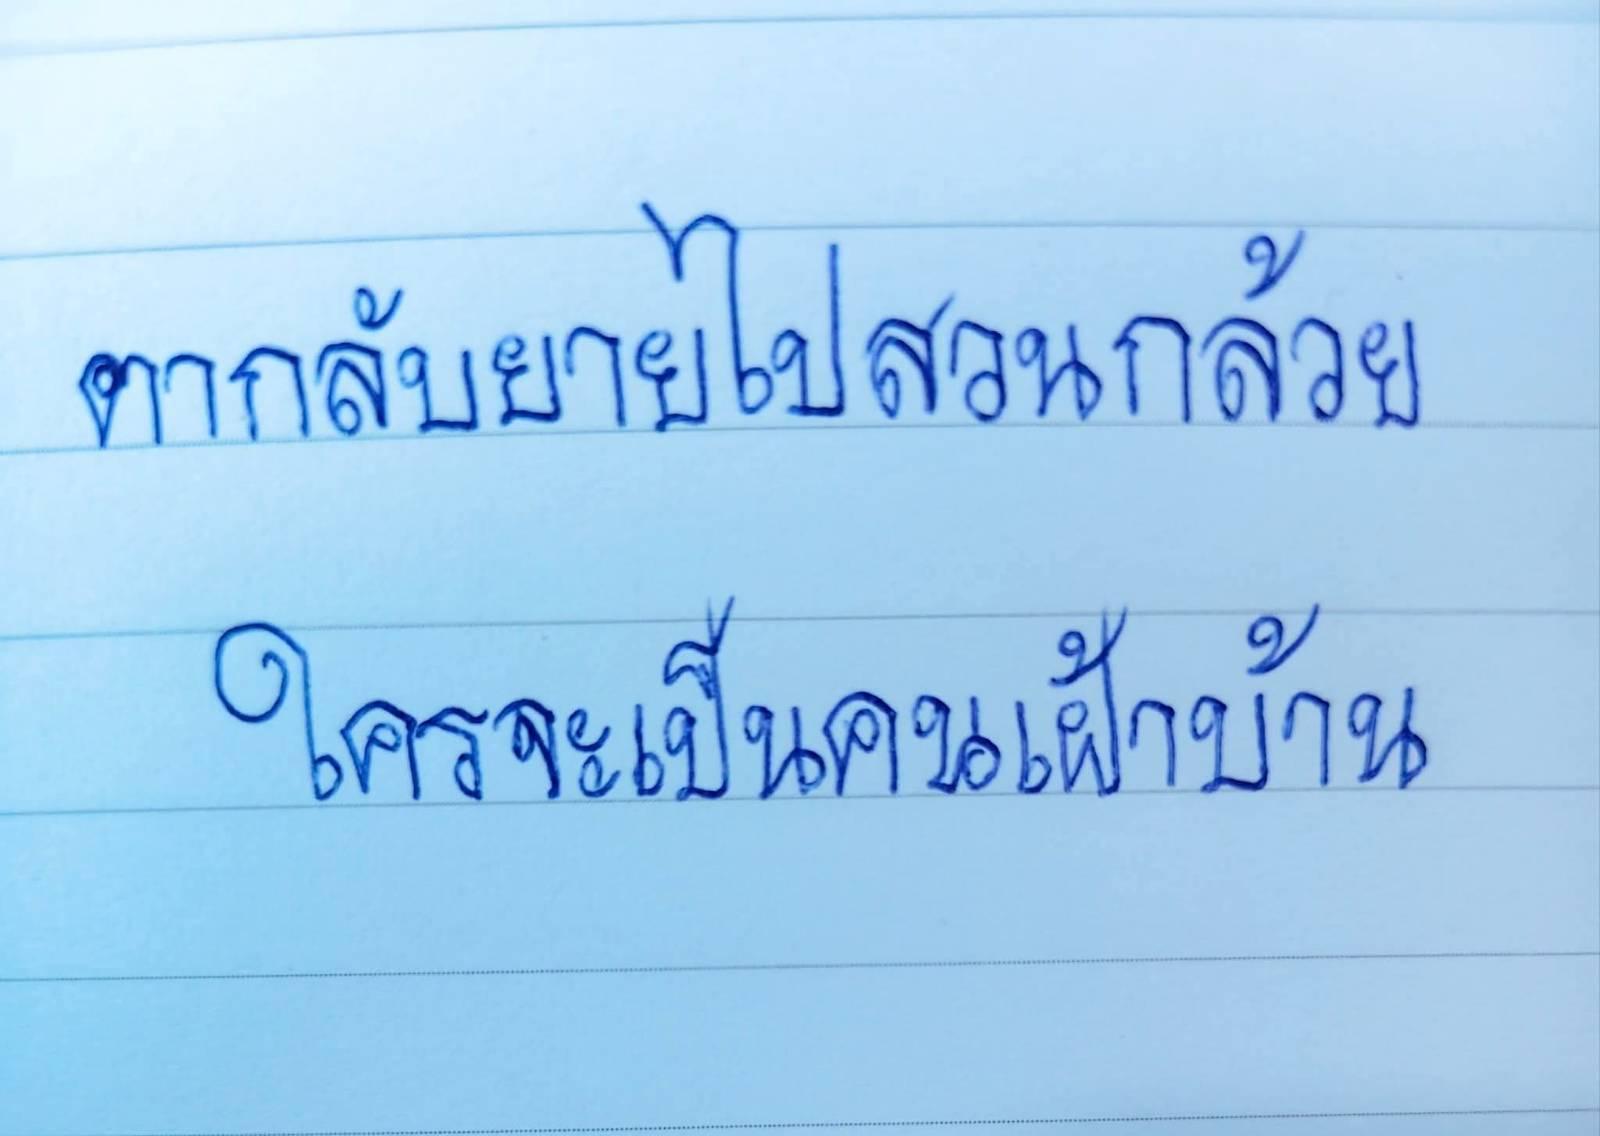 ตากลับยายไปสวนกล้วย
ใครจะเป็นคนเฝ้าบ้าน